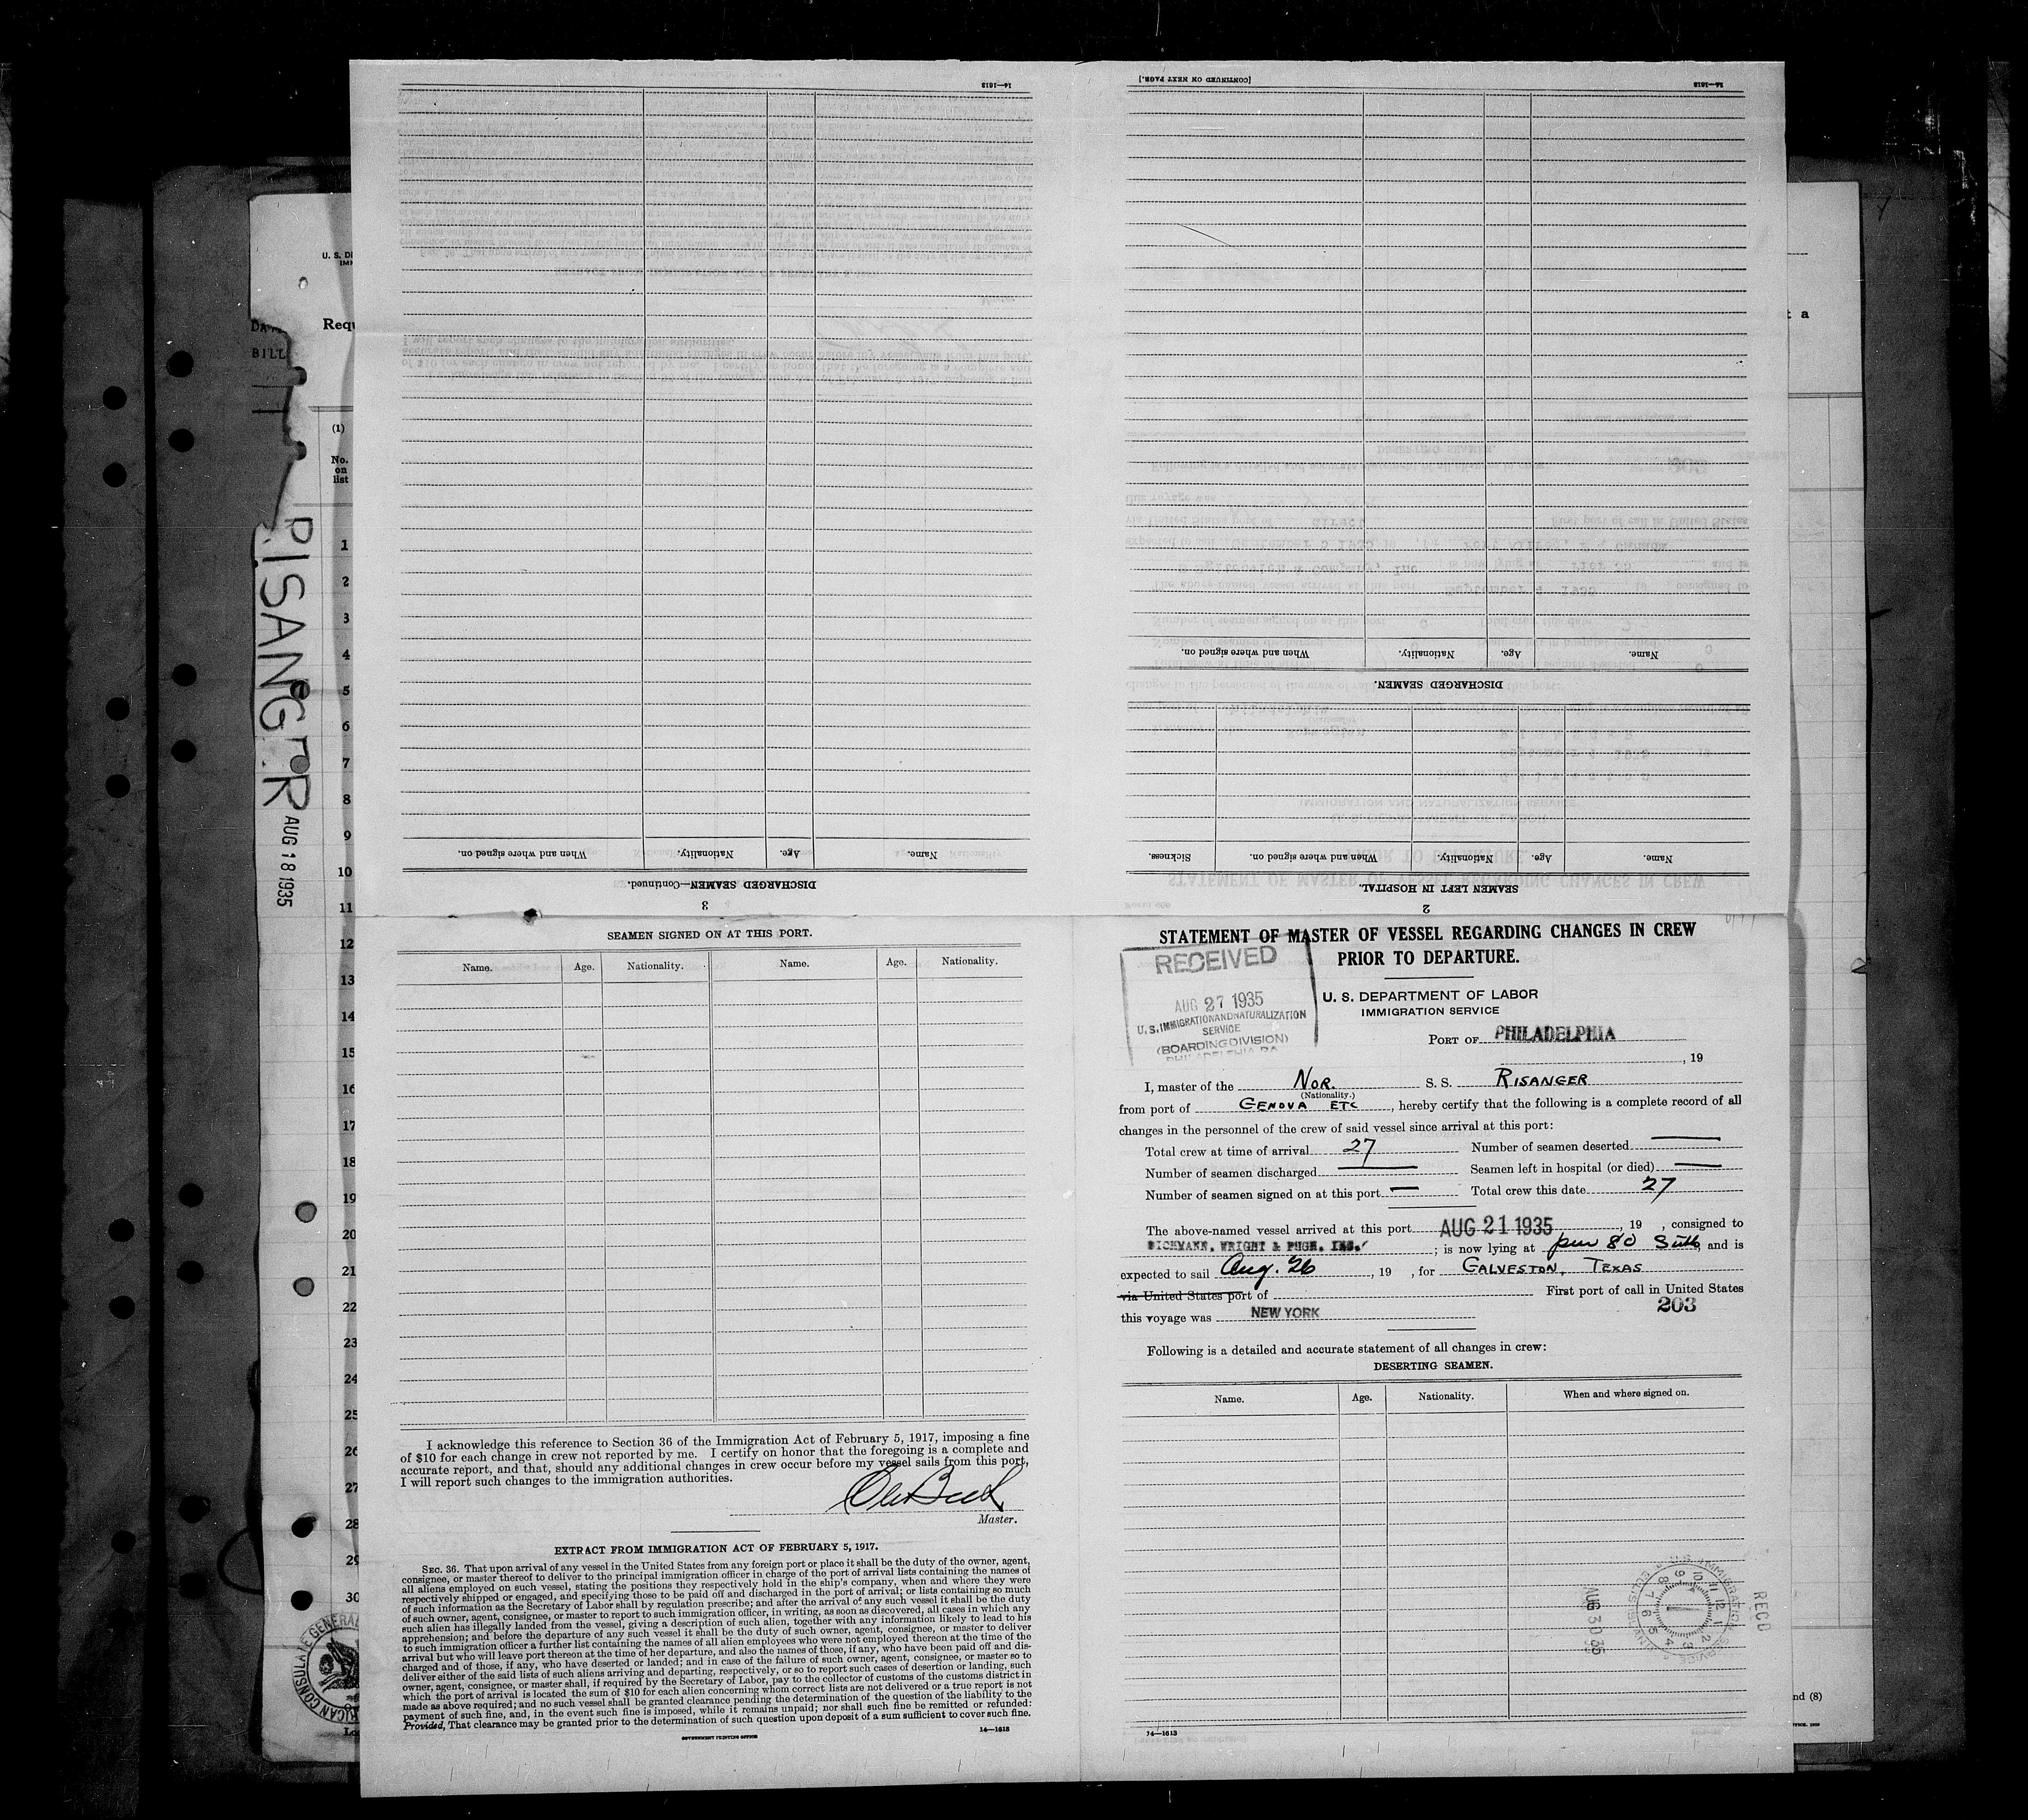 14—1613
[CONTINUED ON NEXT PAGE.]
14—1613
When and where signed on.
Nationality.
Age.
Name.
DISCHARGED SEAMEN.
Sickness.
When and where signed on.
Nationality.
Age.
Name.
SEAMEN LEFT IN HOSPITAL.
2
When and where signed on.
Nationality.
Age.
Name.
DISCHARGED SEAMEN—Continued.
3
U. S. DE
IMM
DA
BILL
Requ
t a
(1)
No.
on
list
1
2
3
4
5
6
7
8
9
10
11
12
13
14
15
16
17
18
19
20
21
22
23
24
25
26
27
28
29
30
RISANGER
AUG 18 1935
SEAMEN SIGNED ON AT THIS PORT.
Name. Age. Nationality. Name. Age. Nationality.
I acknowledge this reference to Section 36 of the Immigration Act of February 5, 1917, imposing a fine
of $10 for each change in crew not reported by me. I certify on honor that the foregoing is a complete and
accurate report, and that, should any additional changes in crew occur before my vessel sails from this port,
I will report such changes to the immigration authorities.
Master.
EXTRACT FROM IMMIGRATION ACT OF FEBRUARY 5, 1917.
SEC. 36. That upon arrival of any vessel in the United States from any foreign port or place it shall be the duty of the owner, agent,
consignee, or master thereof to deliver to the principal immigration officer in charge of the port of arrival lists containing the names of
all aliens employed on such vessel, stating the positions they respectively hold in the ship's company, when and where they were
respectively shipped or engaged, and specifying those to be paid off and discharged in the port of arrival; or lists containing so much
of such information as the Secretary of Labor shall by regulation prescribe; and after the arrival of any such vessel it shall be the duty
of such owner, agent, consignee, or master to report to such immigration officer, in writing, as soon as discovered, all cases in which any
such alien has illegally landed from the vessel, giving a description of such alien, together with any information likely to lead to his
apprehension; and before the departure of any such vessel it shall be the duty of such owner, agent, consignee, or master to deliver
to such immigration officer a further list containing the names of all alien employees who were not employed thereon at the time of the
arrival but who will leave port thereon at the time of her departure, and also the names of those, if any, who have been paid off and dis-
charged and of those, if any, who have deserted or landed; and in case of the failure of such owner, agent, consignee, or master so to
deliver either of the said lists of such aliens arriving and departing, respectively, or so to report such cases of desertion or landing, such
owner, agent, consignee, or master shall, if required by the Secretary of Labor, pay to the collector of customs of the customs district in
which the port of arrival is located the sum of $10 for each alien concerning whom correct lists are not delivered or a true report is not
made as above required; and no such vessel shall be granted clearance pending the determination of the question of the liability to the
payment of such fine, and, in the event such fine is imposed, while it remains unpaid; nor shall such fine be remitted or refunded:
Provided, That clearance may be granted prior to the determination of such question upon deposit of a sum sufficient to cover such fine.
GOVERNMENT PRINTING OFFICE
14—1613
STATEMENT OF MASTER OF VESSEL REGARDING CHANGES IN CREW
PRIOR TO DEPARTURE.
RECEIVED
AUG 27 1935
U. S. IMMIGRATION AND NATURALIZATION
SERVICE
(BOARDING DIVISION)
PHILADELPHIA PA
U. S. DEPARTMENT OF LABOR
IMMIGRATION SERVICE
PORT OF PHILADELPHIA
, 19
I, master of the NOR. S. S. RISANGER
(Nationality.)
from port of GENOVA ETC, hereby certify that the following is a complete record of all
changes in the personnel of the crew of said vessel since arrival at this port:
Total crew at time of arrival 27 Number of seamen deserted —
Number of seamen discharged — Seamen left in hospital (or died) —
Number of seamen signed on at this port — Total crew this date 27
The above-named vessel arrived at this port AUG 21 1935, 19 , consigned to
WRIGHT & PUGH, INC. ; is now lying at pier 80 South, and is
expected to sail Aug. 26, 19 , for GALVESTON, TEXAS
via United States port of First port of call in United States
this voyage was NEW YORK 203
Following is a detailed and accurate statement of all changes in crew:
DESERTING SEAMEN.
Name. Age. Nationality. When and where signed on.
REC'D
AUG 30 35
U. S. IMMIGRATION SERVICE
14—1613
nd (8)